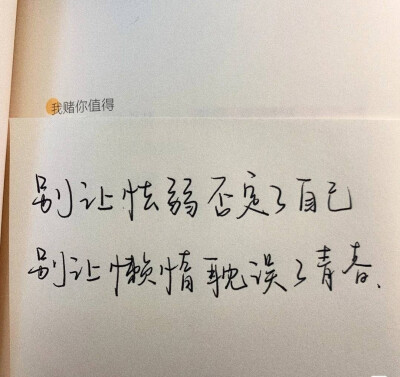 我赌你值得
别让怯弱否定了自己
别让懒惰耽误了青春、